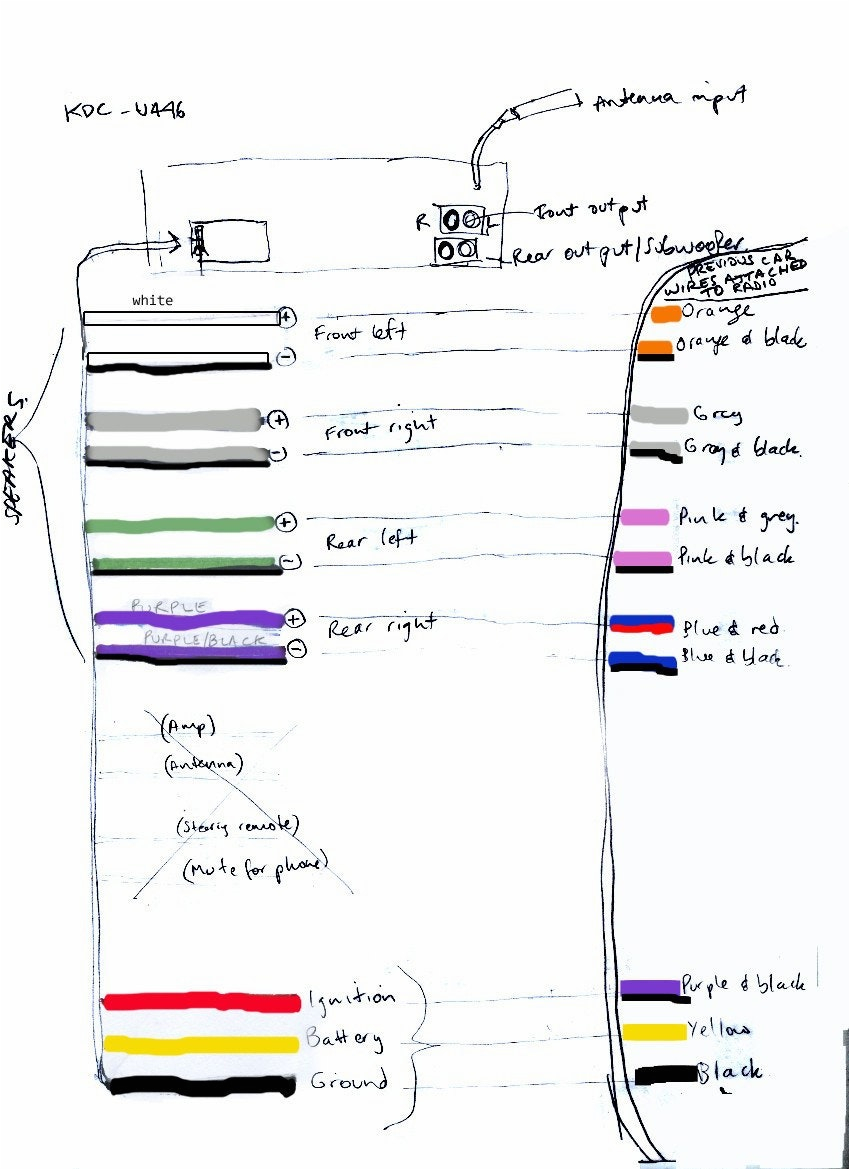 KDC-U446
Antenna input
R L Front output
Rear output/Subwoofer
PREVIOUS CAR
WIRES ATTACHED
TO RADIO
SPEAKERS.
white + Front left Orange
- Orange & black
+ Front right Grey
- Grey & black.
+ Rear left Pink & grey.
- Pink & black
PURPLE + Rear right Blue & red
PURPLE/BLACK - Blue & black.
(Amp)
(Antenna)
(Steering remote)
(Mute for phone)
Ignition Purple & black
Battery Yellow
Ground Black